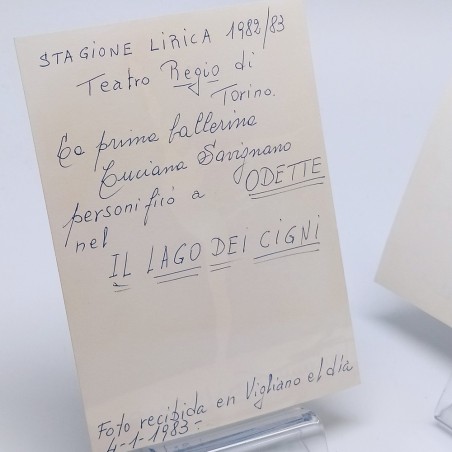 STAGIONE LIRICA 1982/83
Teatro Regio di
Torino.
La prima ballerina
Luciana Savignano
personificó a ODETTE
nel
IL LAGO DEI CIGNI
Foto recibida en Vigliano el día
4-1-1983-